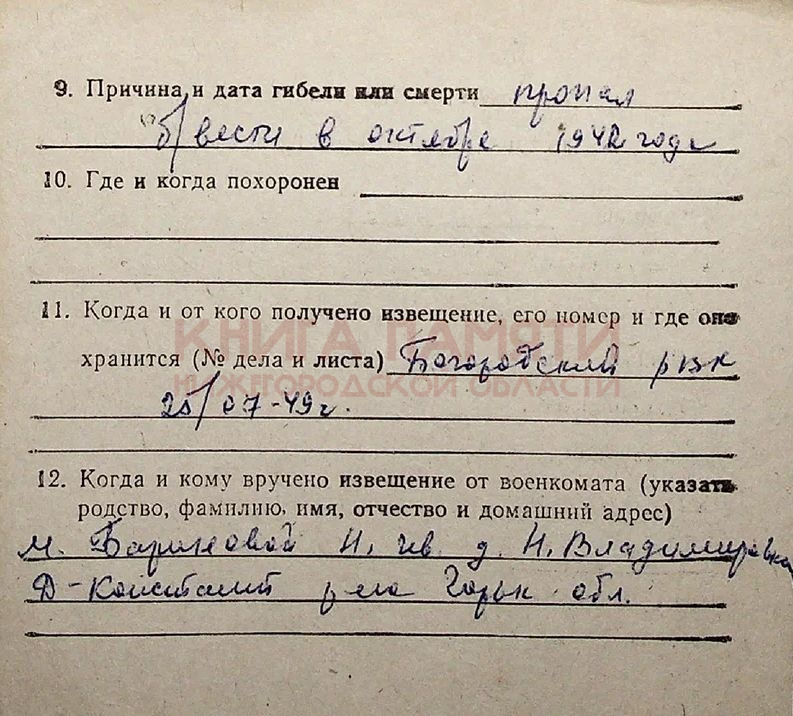 9. Причина и дата гибели или смерти пропал
б/вести в октябре 1942 года
10. Где и когда похоронен
11. Когда и от кого получено извещение, его номер и где оно
КНИГА ПАМЯТИ
хранится (№ дела и листа) Богородский рвк
НИЖЕГОРОДСКОЙ ОБЛАСТИ
25/07-49г.
12. Когда и кому вручено извещение от военкомата (указать
родство, фамилию, имя, отчество и домашний адрес)
м. Бариновой Н. Ив. д. Н. Владимировка
Д-Констант р-на Горьк обл.